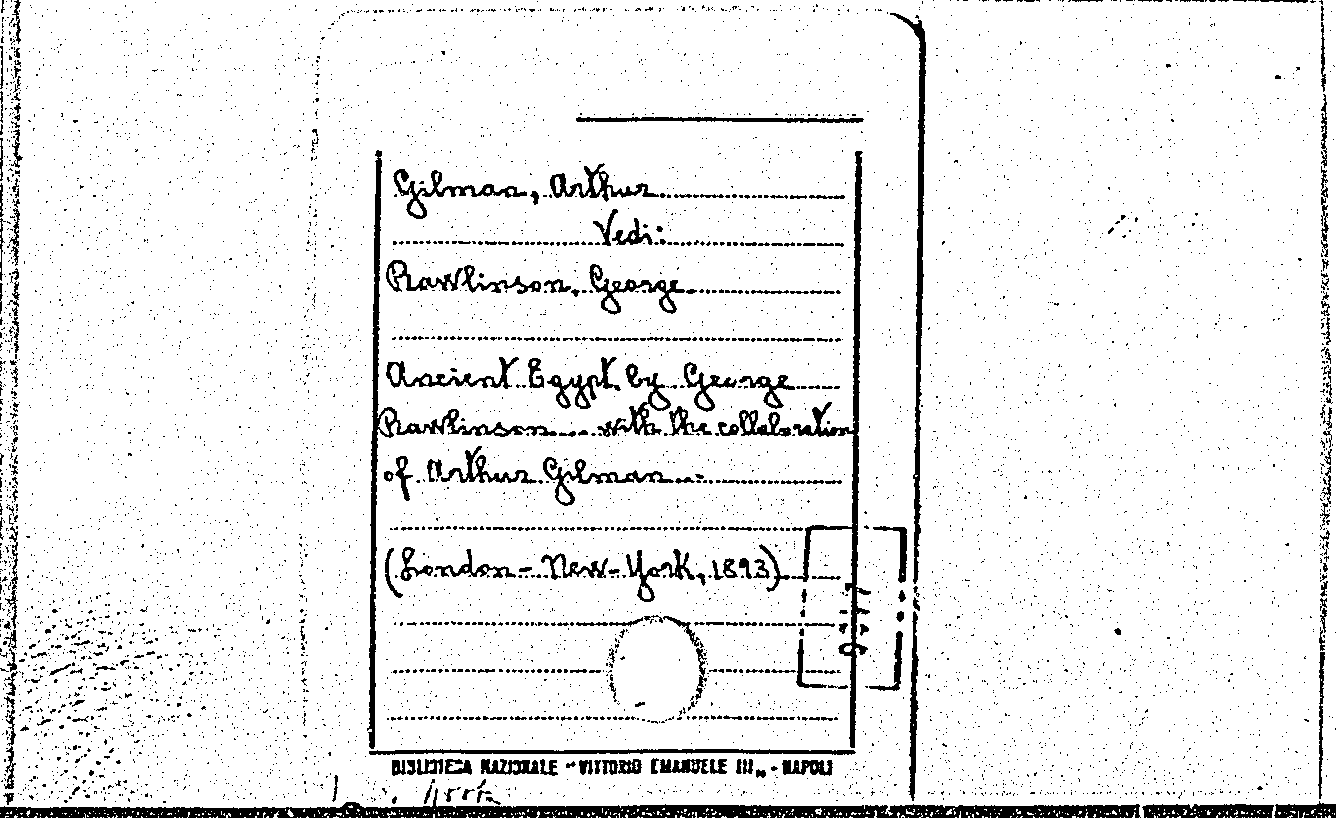 Gilman, Arthur
Vedi:
Rawlinson, George
Ancient Egypt by George
Rawlinson... with the collaboration
of Arthur Gilman...
(London - New-York, 1893)
BIBLIOTECA NAZIONALE "VITTORIO EMANUELE III„ - NAPOLI